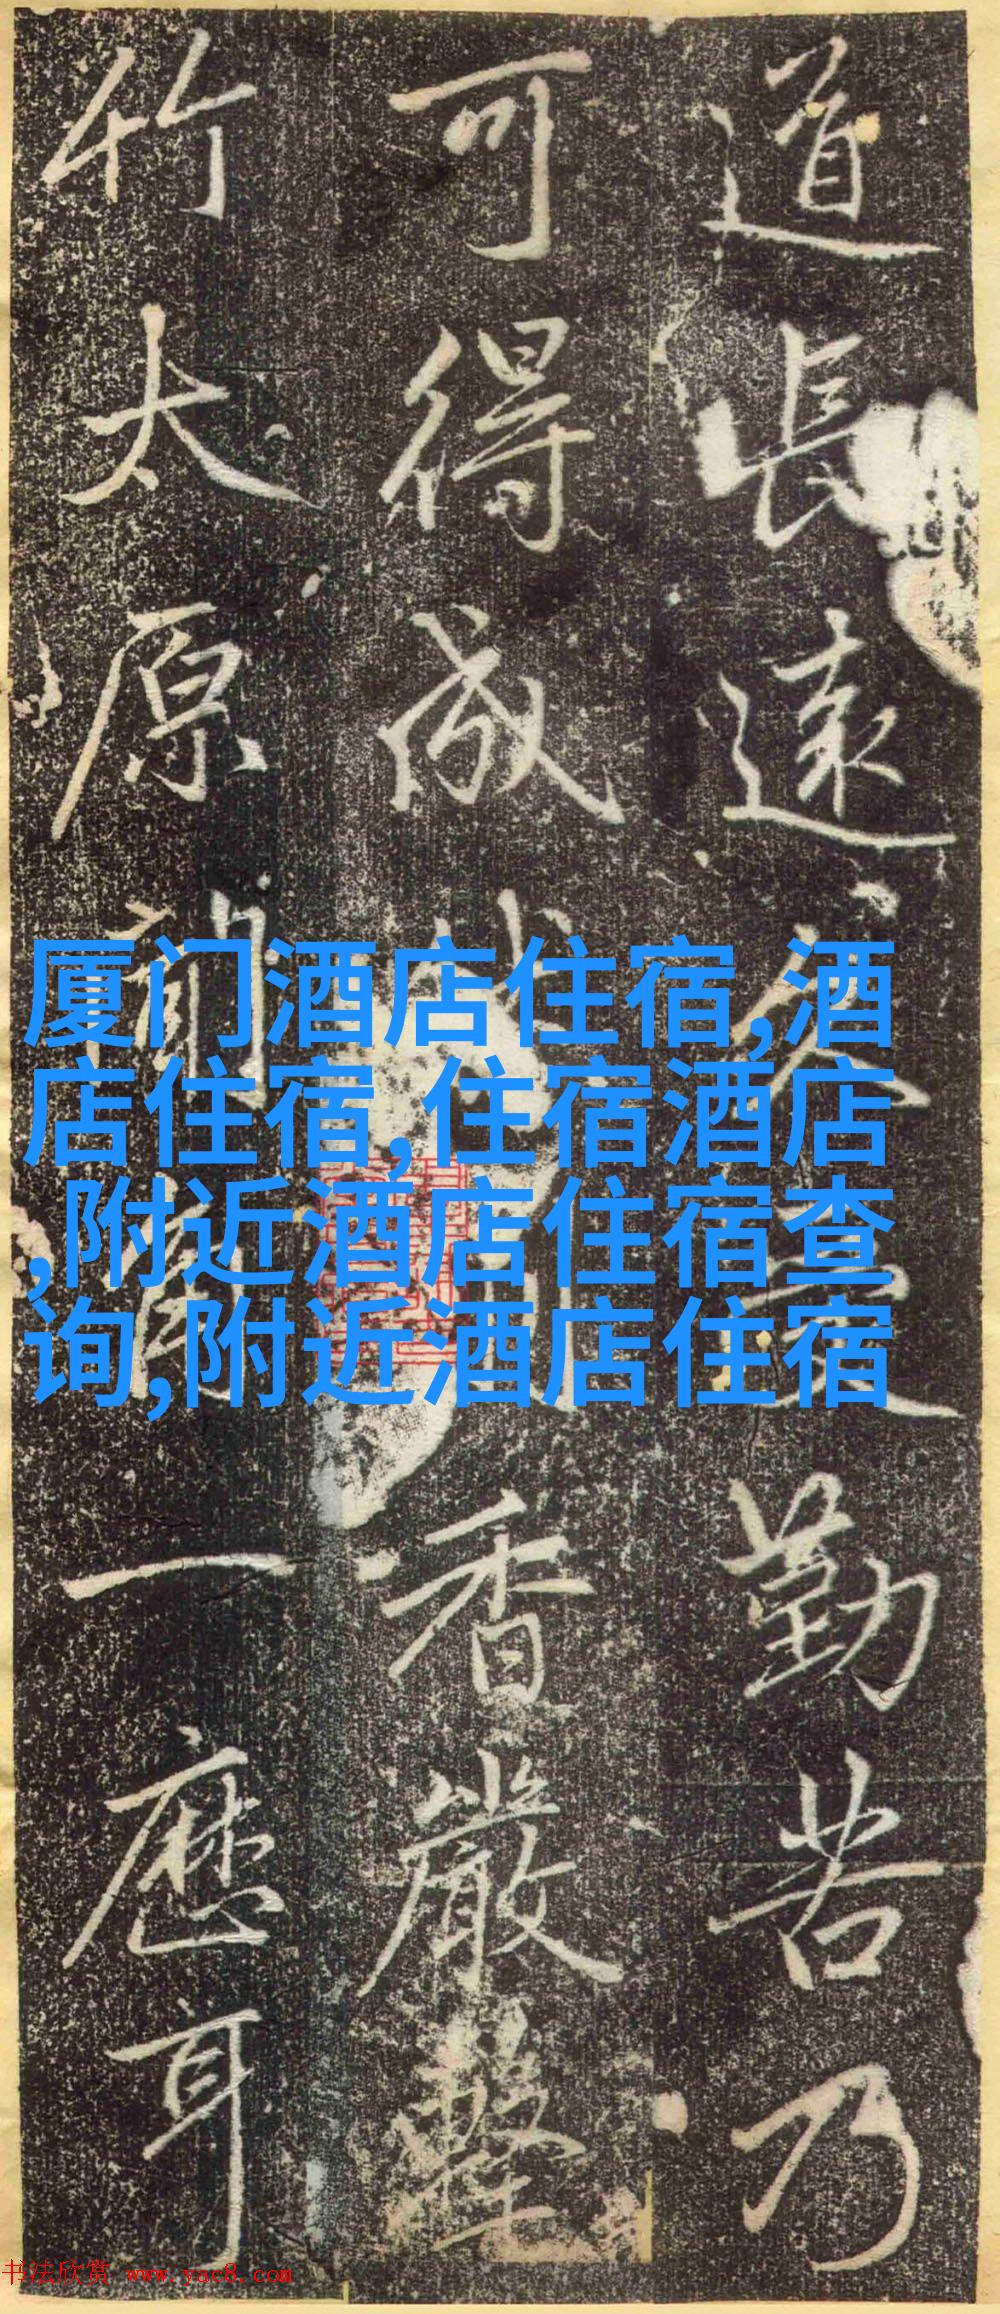 道長遠久受勤苦乃
可得成香嚴擊
竹太原聞角一應耳
厦门酒店住宿,酒
店住宿,住宿酒店
,附近酒店住宿查
询,附近酒店住宿
书法欣赏 www.yac8.com